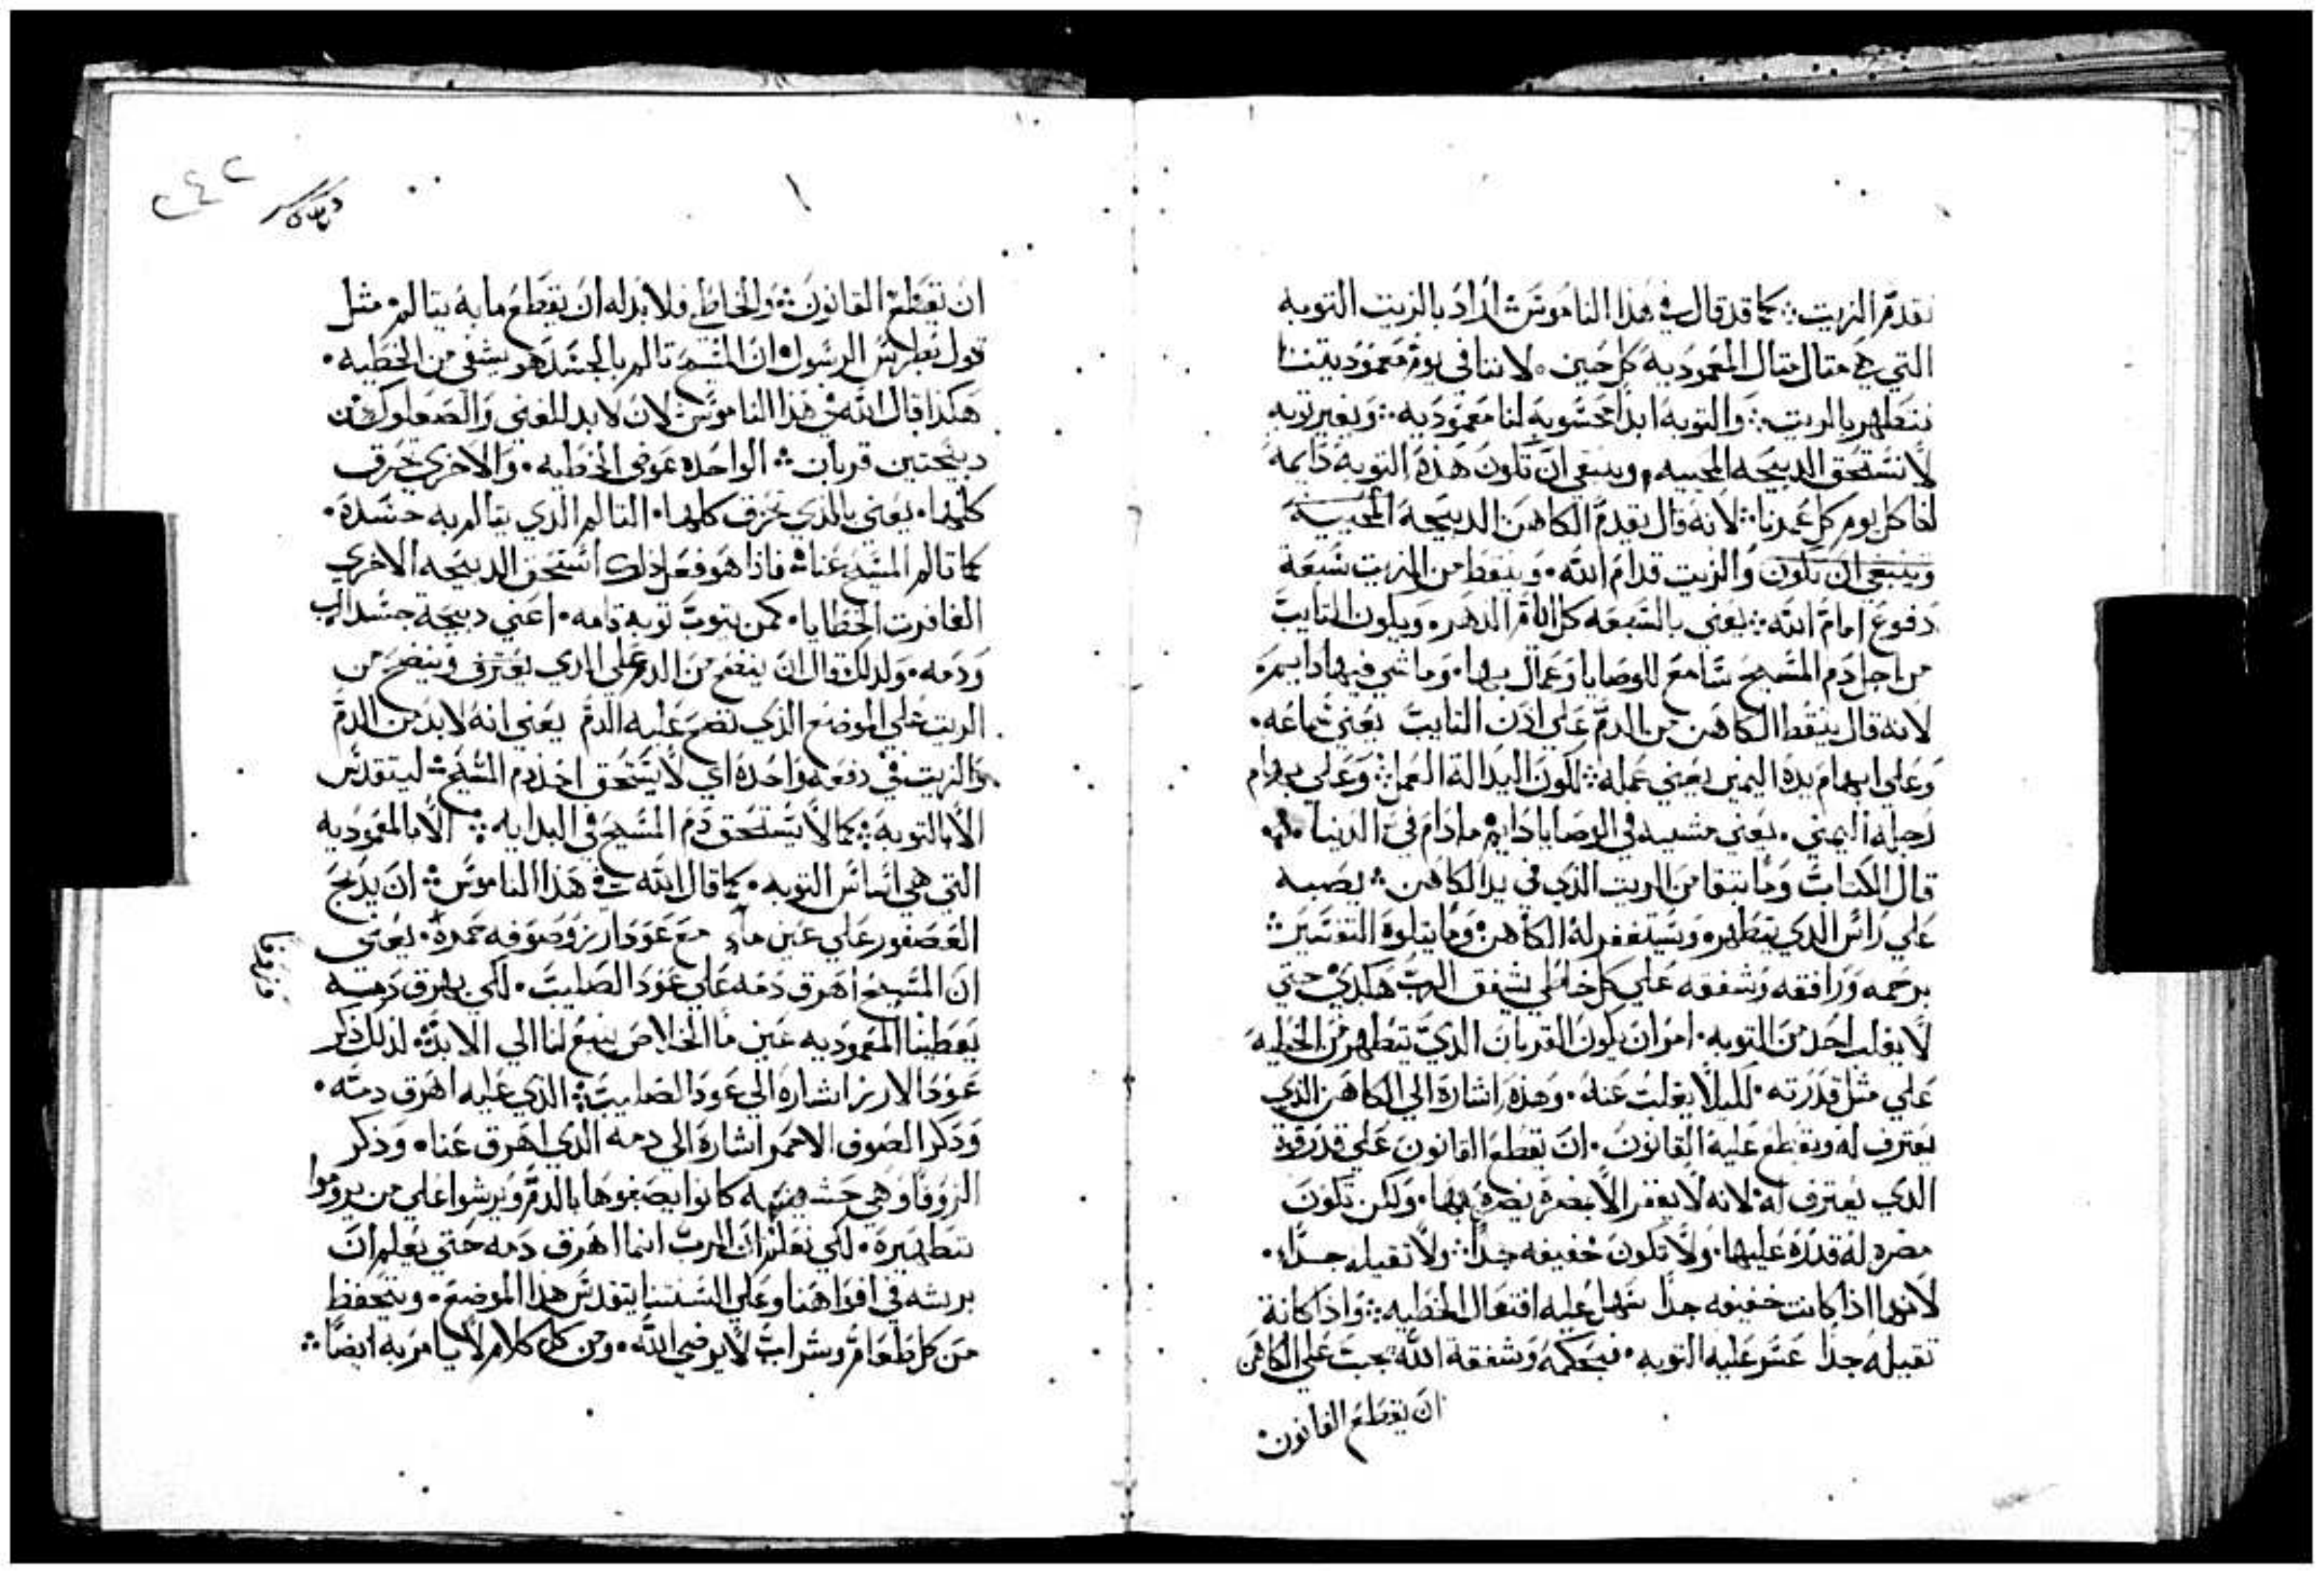 تقدم الزيت كما قد قال في هذا الناموس اراد بالزيت التوبه
التي هي مثال مثال المعموديه كل حين لاننا في يوم معموديتنا
نتطهر بالزيت والتوبه ابدا محسوبه لنا معموديه وبغير توبه
لا نستحق الدبيحه المحييه وينبغي ان تكون هذه التوبه دايمه
لنا كل يوم كل عمرنا لانه قال يقدم الكاهن الدبيحة المحييه
وينبغي ان تكون والزيت قدام الله وينقط من الزيت سبعة
دفوع امام الله يعني بالسبعه كل ايام الدهر ويكون التايب
من اجل دم المسيح سامع للوصايا وعمال بها وماشي فيها دايم
لانه قال ينقط الكاهن من الدم علي ادن التايب يعني سماعه
وعلي ابهام يده اليمين يعني عمله لكون اليد الة العمل وعلي بهام
رجله اليمني يعني مشيه في الوصايا دايم ما دام في الدنيا
قال الكتاب وما يتبقا من الزيت الذي في يد الكاهن يصبه
علي راس الدي يتطهر ويستغفر له الكاهن وما يتلوه التفسير
برحمه ورافقه وشفقه علي كل خاطي يشفق الرب هكدي حتي
لا يغلب احد من التوبه امر ان يكون القربان الدي يتطهر من الخطيه
علي مثل قدرته لليلا يغلب عنه وهذه اشارة الي الكاهن الذي
يعترف له ويقطع عليه القانون ان يقطع القانون علي قدر قوة
الدي يعترف له لانه لا يغفر الا بضره يضره بها ولكن تكون
مضره له قدره عليها ولا تكون خفيفه جدا ولا تقيله جدا
لانها اذا كانت خفيفه جدا سهل عليه افتعال الخطيه واذا كانة
تقيله جدا عسر عليه التوبه فبحكمه وشفقة الله يجب علي الكاهن
ان يقطع القانون
٢٤٢
ان يقطع القانون والخاطي فلا بد له ان يقطع ما به يتالم مثل
قول بطرس الرسول ان المسيح تالم بالجسد هو يشفي من الخطيه
هكذا قال الله في هذا الناموس لان لا بد للغني والصعلوك من
دبيحتين قربان الواحده عوض الخطيه والاخري تحرق
كلها يعني بالذي تحرق كلها التالم الذي يتالم به جسده
كما تالم المسيح عنا فاذا هو فعل ذلك استحق الدبيحه الاخري
الغافرت الخطايا كمن يتوب توبه تامه اعني دبيحة جسد الرب
ودمه ولدلك قال ان ينضح من الدم علي الذي يعترف وينضح من
الزيت علي الموضع الذي نضح عليه الدم يعني انه لا بد من الدم
والزيت في دفعه واحده اي لا يستحق اخذ دم المسيح ليتقدس
الا بالتوبه كما لا يستحق دم المسيح في البدايه الا بالمعموديه
التي هي اساس التوبه كما قال الله في هذا الناموس ان يدبح
العصفور علي عين ماء مع عود ارز وصوفه حمره يعني
ان المسيح اهرق دمه علي عود الصليب لكي بهرق دمه
يعطينا المعموديه عين ما الخلاص ينبع لنا الي الابد لذلك ذكر
عود الارز اشاره الي عود الصليب الذي عليه اهرق دمه
وذكر الصوف الاحمر اشارة الي دمه الذي اهرق عنا وذكر
الزوفا وهي حشيشه كانوا يصبغوها بالدم ويرشوا علي من يروموا
تطهيره لكي نعلم ان الرب انما اهرق دمه حتي يعلم ان
برشه في افواهنا وعلي السنتنا يتقدس هذا الموضع ويتحفظ
من كل طعام وشراب لا يرضي الله ومن كل كلام لا يامر به ايضا